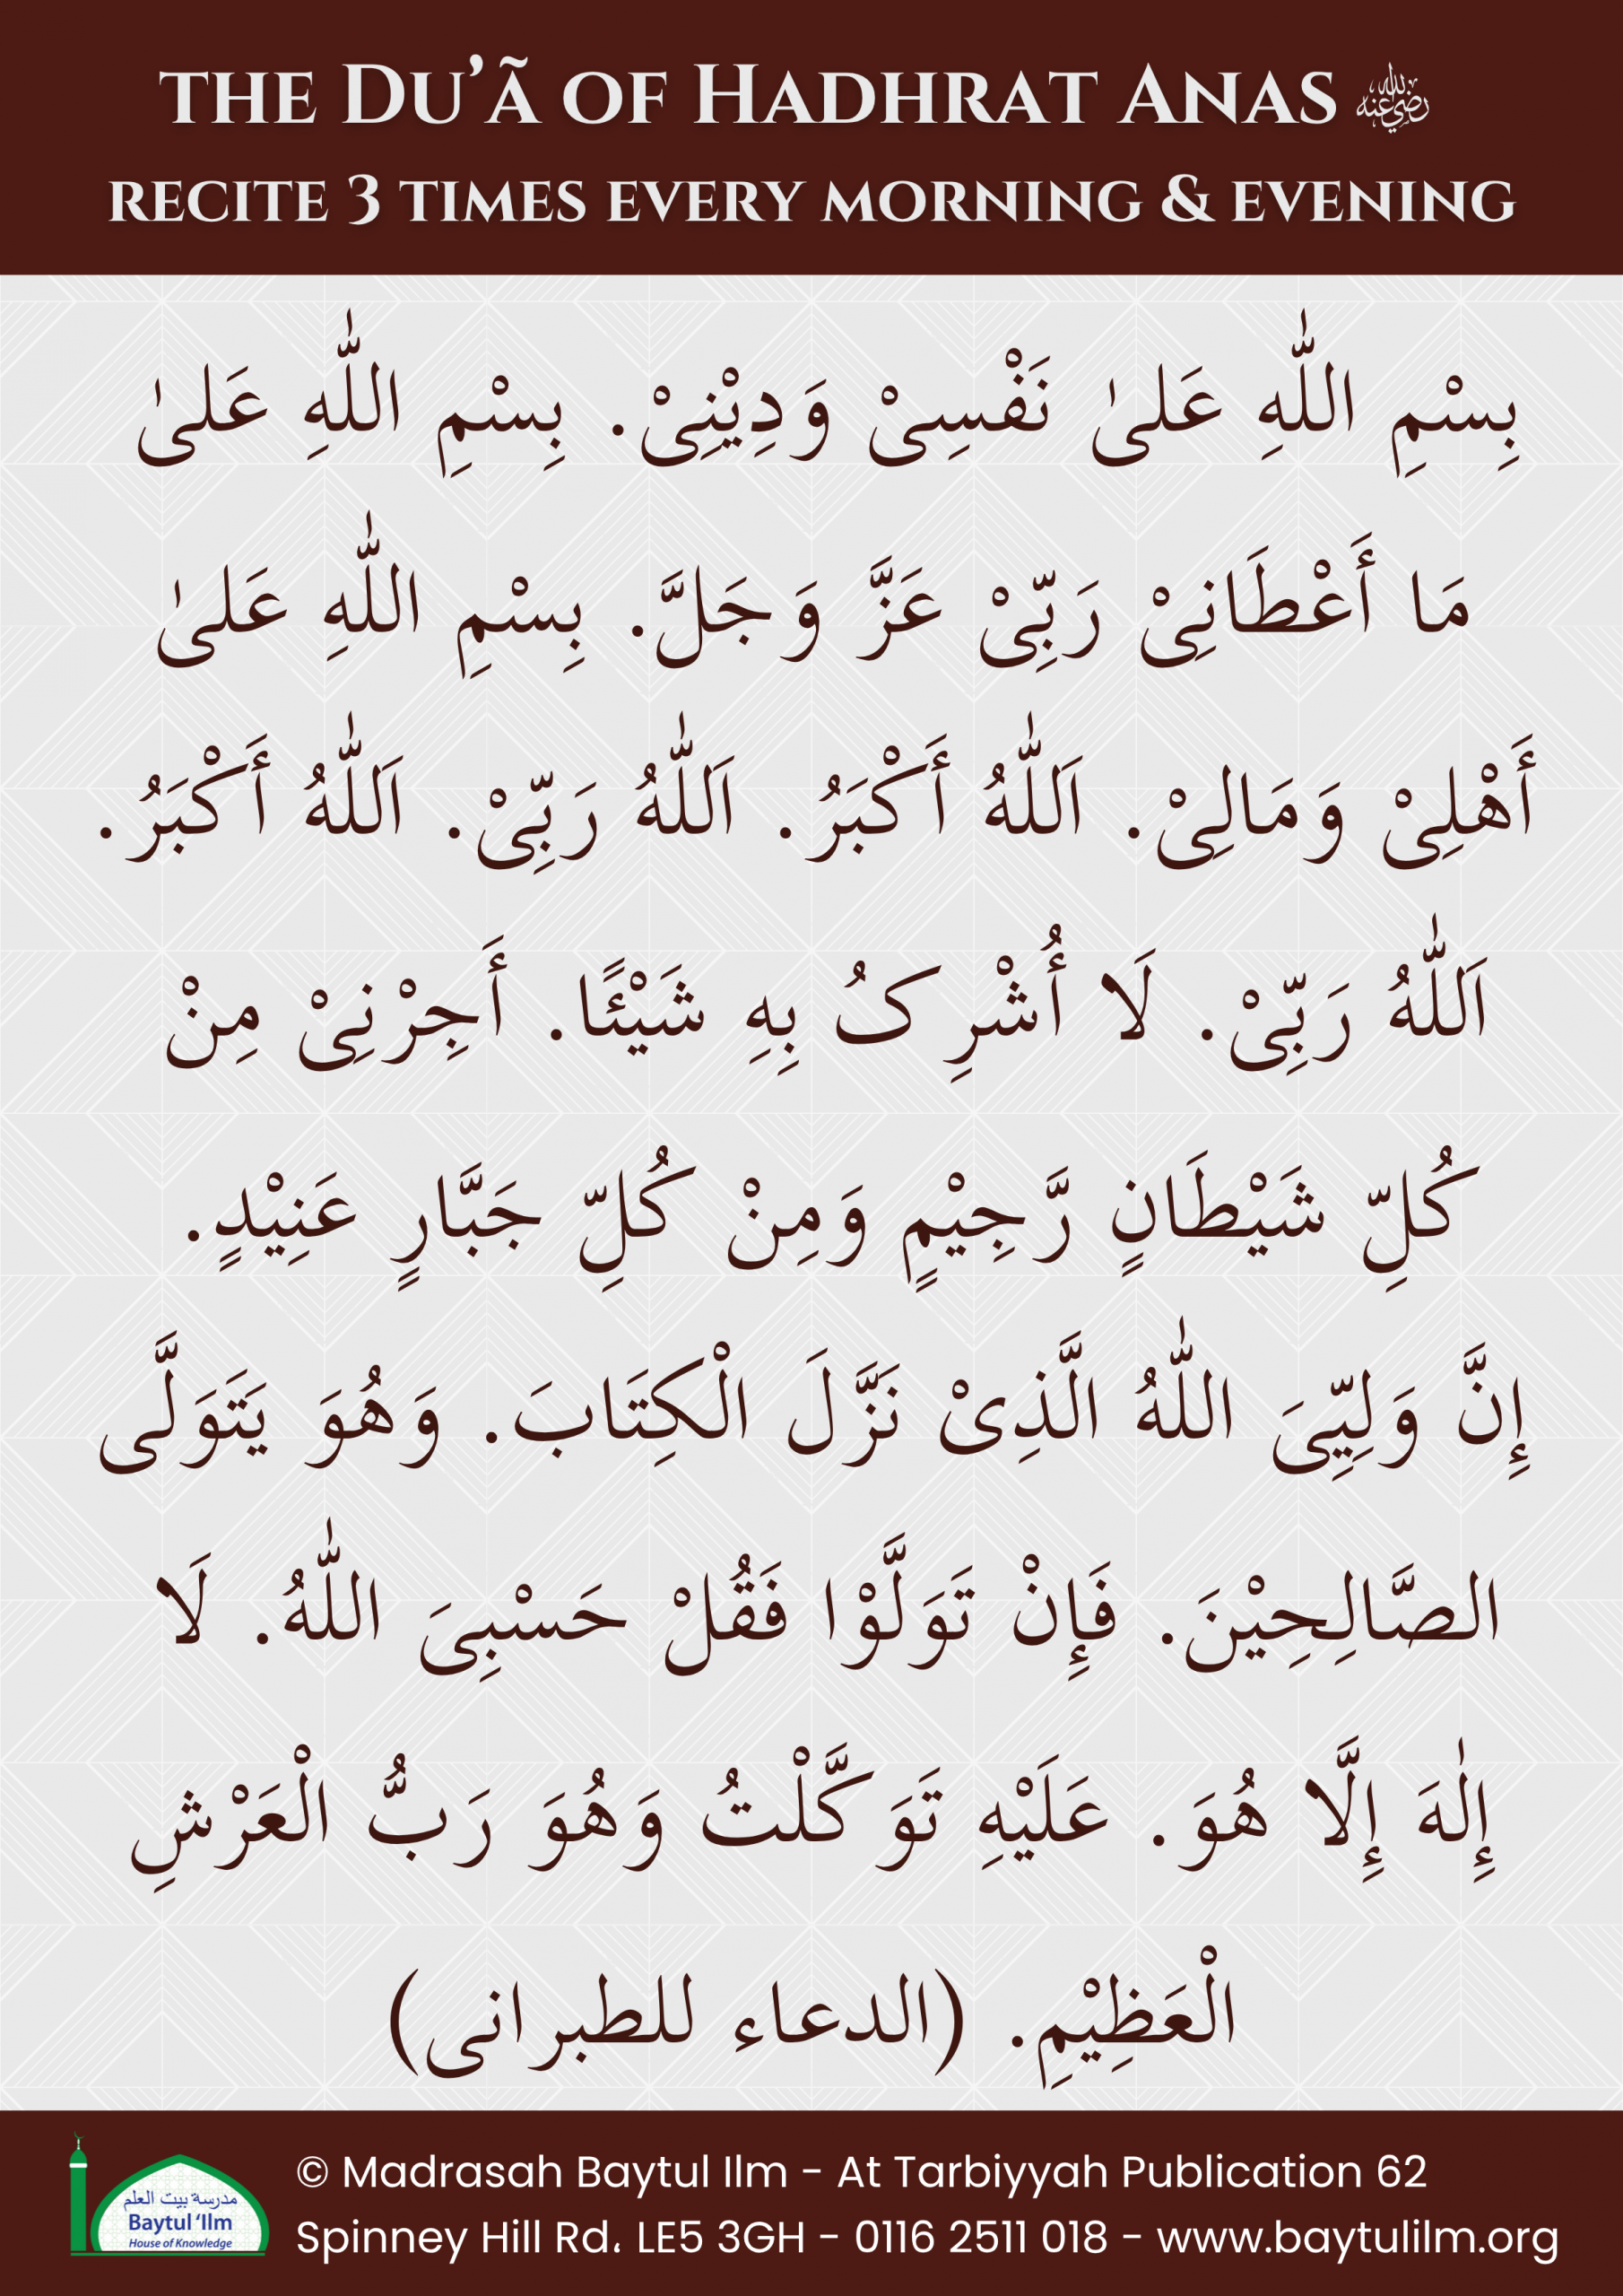 THE DU’Ã OF HADHRAT ANAS رضي الله عنه
RECITE 3 TIMES EVERY MORNING & EVENING
بِسْمِ اللّٰهِ عَلىٰ نَفْسِیْ وَدِيْنِیْ. بِسْمِ اللّٰهِ عَلىٰ
مَا أَعْطَانِیْ رَبِّیْ عَزَّ وَجَلَّ. بِسْمِ اللّٰهِ عَلىٰ
أَهْلِیْ وَمَالِیْ. اَللّٰهُ أَكْبَرُ. اَللّٰهُ رَبِّیْ. اَللّٰهُ أَكْبَرُ.
اَللّٰهُ رَبِّیْ. لَا أُشْرِکُ بِهِ شَيْئًا. أَجِرْنِیْ مِنْ
كُلِّ شَيْطَانٍ رَّجِيْمٍ وَمِنْ كُلِّ جَبَّارٍ عَنِيْدٍ.
إِنَّ وَلِيِّیَ اللّٰهُ الَّذِیْ نَزَّلَ الْكِتَابَ. وَهُوَ يَتَوَلَّى
الصَّالِحِيْنَ. فَإِنْ تَوَلَّوْا فَقُلْ حَسْبِیَ اللّٰهُ. لَا
إِلٰهَ إِلَّا هُوَ. عَلَيْهِ تَوَكَّلْتُ وَهُوَ رَبُّ الْعَرْشِ
الْعَظِيْمِ. (الدعاء للطبرانی)
مدرسة بيت العلم
Baytul ‘Ilm
House of Knowledge
© Madrasah Baytul Ilm - At Tarbiyyah Publication 62
Spinney Hill Rd، LE5 3GH - 0116 2511 018 - www.baytulilm.org